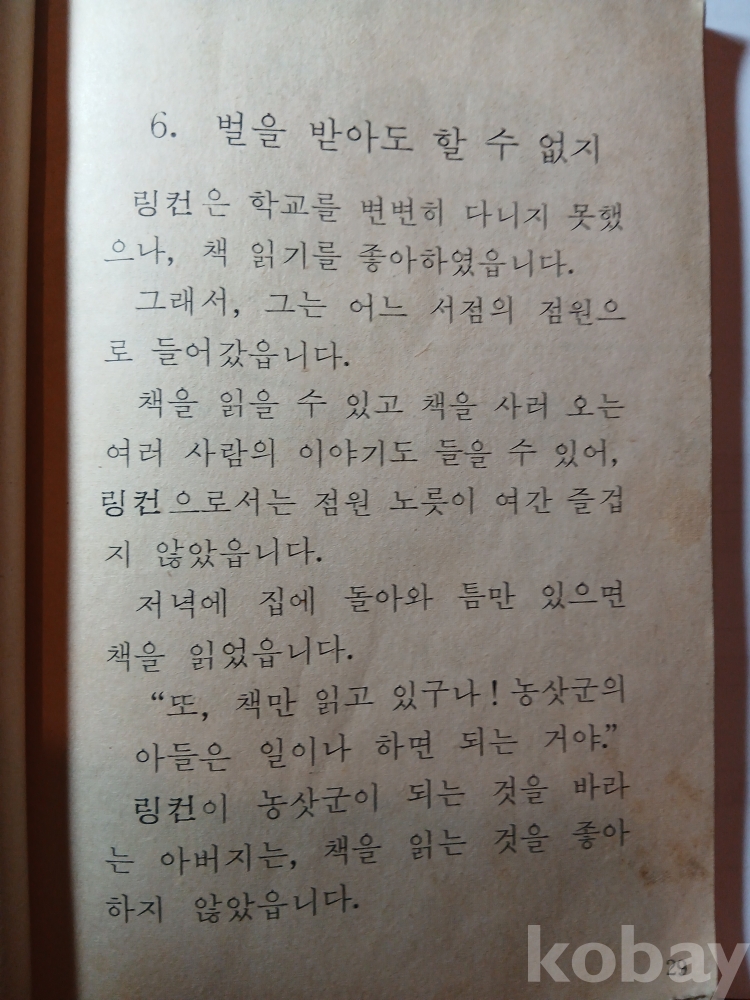 6. 벌을 받아도 할 수 없지
링컨은 학교를 변변히 다니지 못했
으나, 책 읽기를 좋아하였읍니다.
그래서, 그는 어느 서점의 점원으
로 들어갔읍니다.
책을 읽을 수 있고 책을 사러 오는
여러 사람의 이야기도 들을 수 있어,
링컨으로서는 점원 노릇이 여간 즐겁
지 않았읍니다.
저녁에 집에 돌아와 틈만 있으면
책을 읽었읍니다.
“또, 책만 읽고 있구나! 농삿군의
아들은 일이나 하면 되는 거야.”
링컨이 농삿군이 되는 것을 바라
는 아버지는, 책을 읽는 것을 좋아
하지 않았읍니다.
kobay
29